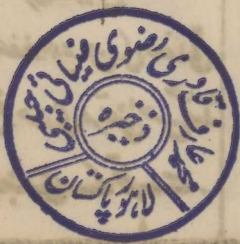 محمد عارف قادری رضوی ضیائی جبلپوری
ذخیرہ
لاہور پاکستان